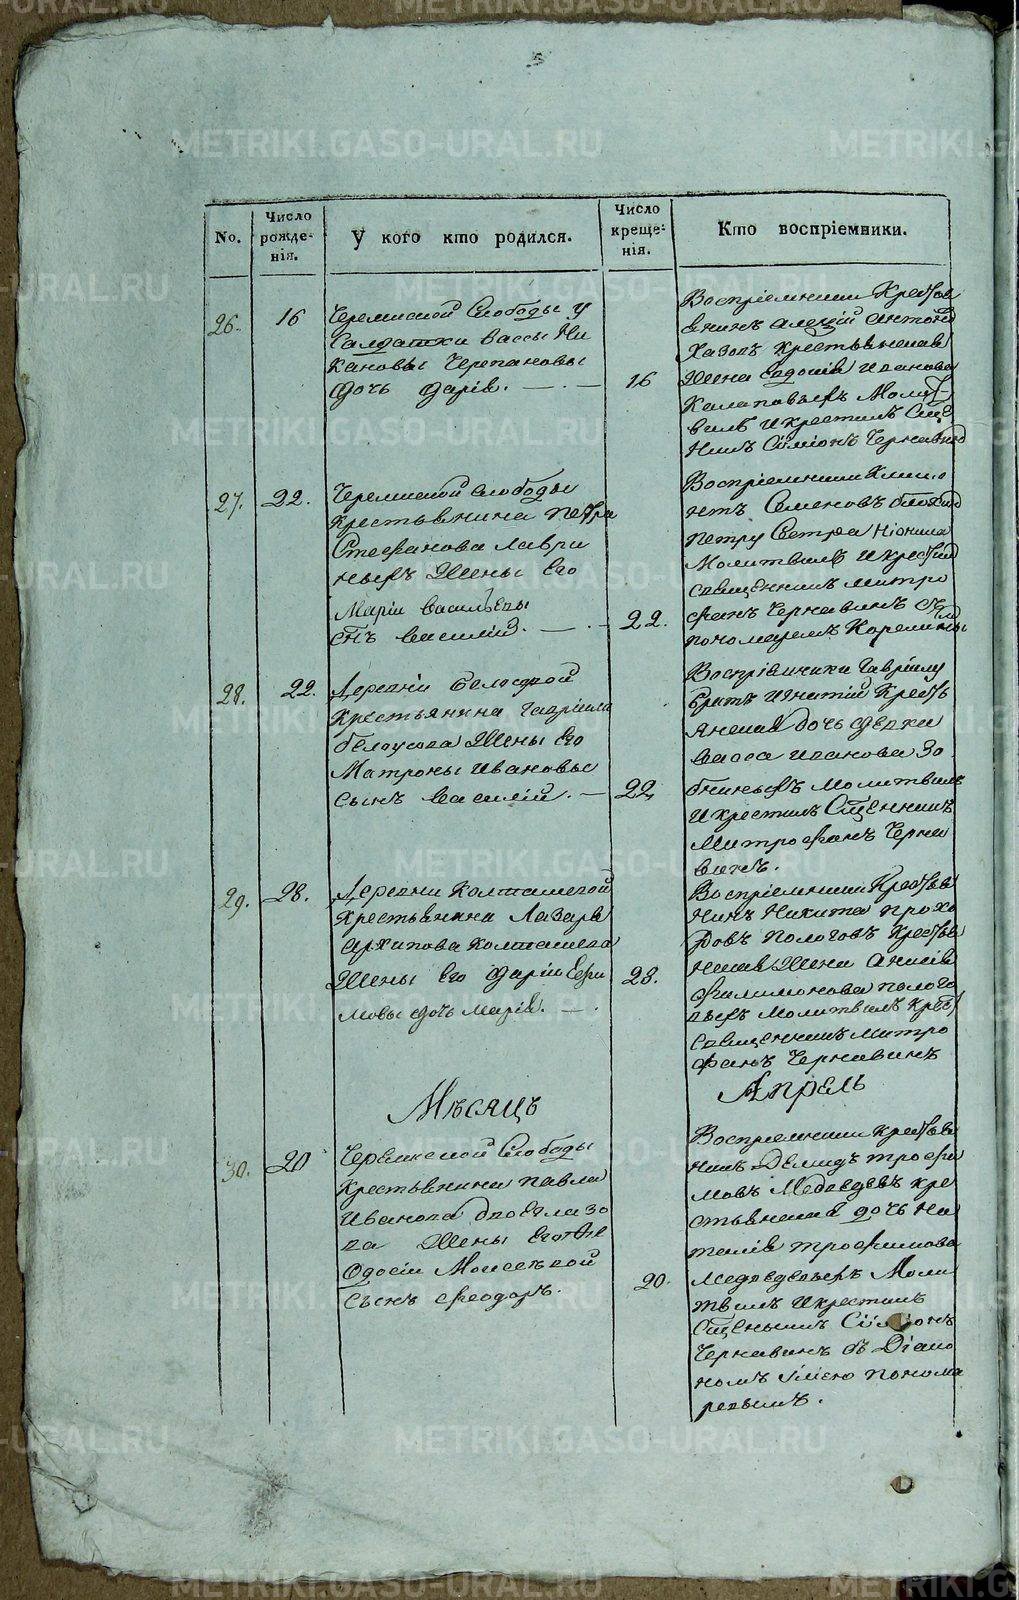 No.
Число
рожде-
нія.
У кого кто родился.
Число
креще-
нія.
Кто воспріемники.
26.
16
Черемисской Слободы у
Салдатки Вассы Ни
кановы Черепановы
дочь Дарія.
16
Воспріемники Крестья
внинъ Алецій Антоно
жена Евдокія Иванова
Молит
вилъ и крестилъ Сще
нникъ Сіміонъ Чернавин
27.
22.
Черемиской слободы
крестьянина Петра
Стефанова Лаври
ныхъ Жены Его
Маріи Васильевы
Снъ Василій.
22.
Воспріемники Клим
нтъ Семеновъ
Петру Сестра
Молитвилъ и крестил
священникъ митро
фанъ Чернавинъ съ
пономаремъ
28.
22.
Деревни Белоусовой
Крестьянина Гавріила
белоусова Жены Его
Матроны Ивановы
сынъ Василій.
22
Воспріемники Гавріилу
братъ Игнатій Кресть
янская дочь девки
васса иванова Зо
бниныхъ молитвилъ
и крестилъ Сщенникъ
Митрофанъ Черна
винъ.
29.
28.
Деревни Колташевой
Крестьянина Лазаря
Архипова Колташева
Жены Его Даріи Ефи
мовы дочь Марія.
28.
Воспріемники Крестья
нинъ Никита прохо
ровъ Пологовъ Крестья
нская Жена Анисія
Филимонова полого
выхъ молитвилъ Крес
священникъ митро
фанъ Чернавинъ
Мѣсяцъ
Апрель
30.
20
Черемисской Слободы
Крестьянина Павла
Иванова двоеглазо
ва Жены Его Фе
Одосіи Моисеевой
Сынъ Феодоръ.
20.
Воспріемники Крестья
нинъ Демидъ трофи
мовъ Медведевъ кре
стьянская дочь На
талія трофимова
медведевыхъ Моли
твилъ и крестилъ
Сщенникъ Сіміонъ
Чернавинъ съ Діако
номъ Иліею понома
ревымъ.
METRIKI.GASO-URAL.RU